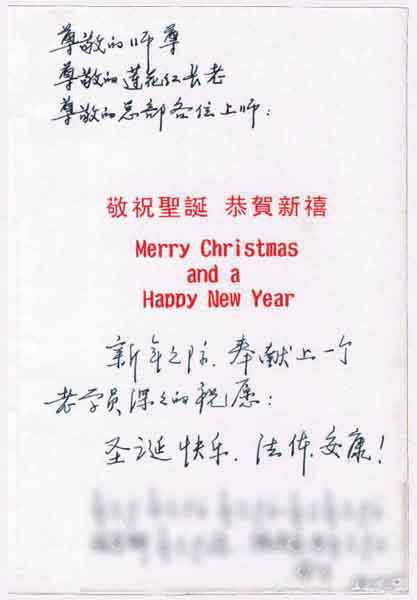 尊敬的师尊
尊敬的莲花红长老
尊敬的总部各位上师：
敬祝聖誕 恭賀新禧
Merry Christmas
and a
Happy New Year
新年之际，奉献上一个
老学员深々的祝愿：
圣诞快乐，法体安康！